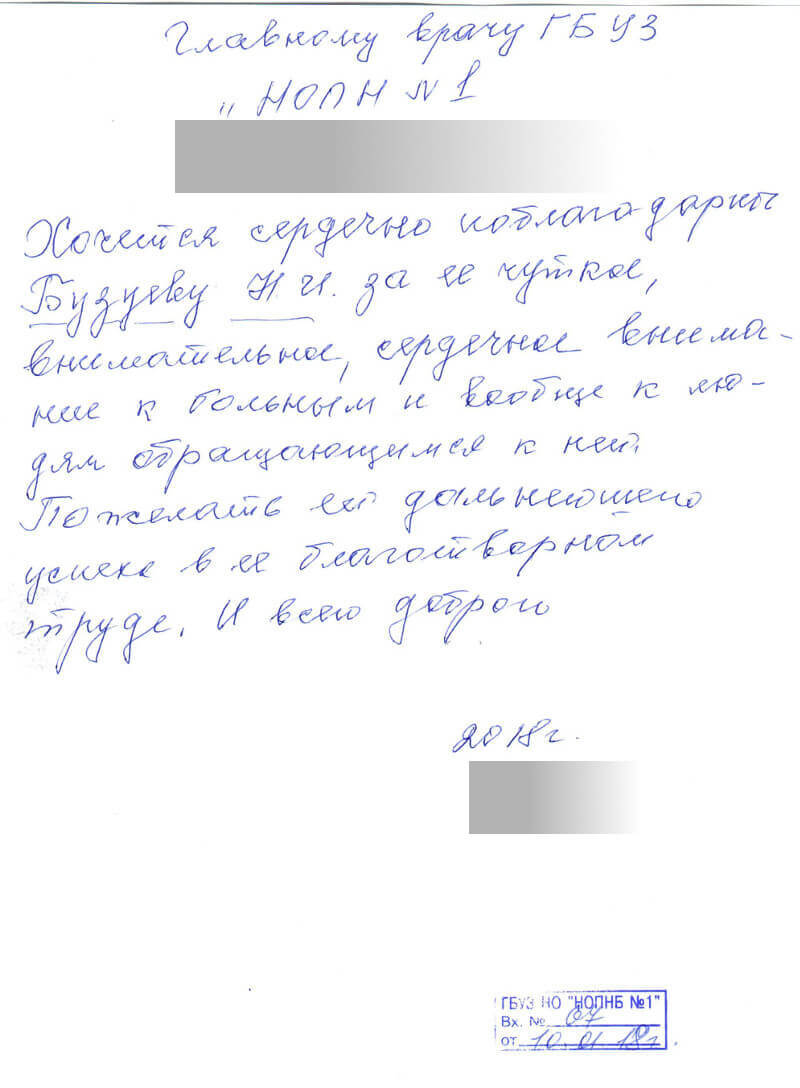 Главному врачу ГБУЗ
„НОПН N 1
Хочется сердечно поблагодарить
Бузуеву Н И. за ее чуткое,
внимательное, сердечное внима-
ние к больным и вообще к лю-
дям обращающимся к ней.
Пожелать ей дальнейшего
успеха в ее благотворном
труде. И всего доброго
2018г.
ГБУЗ НО "НОПНБ №1"
Вх. № 07
от 10.01.18г